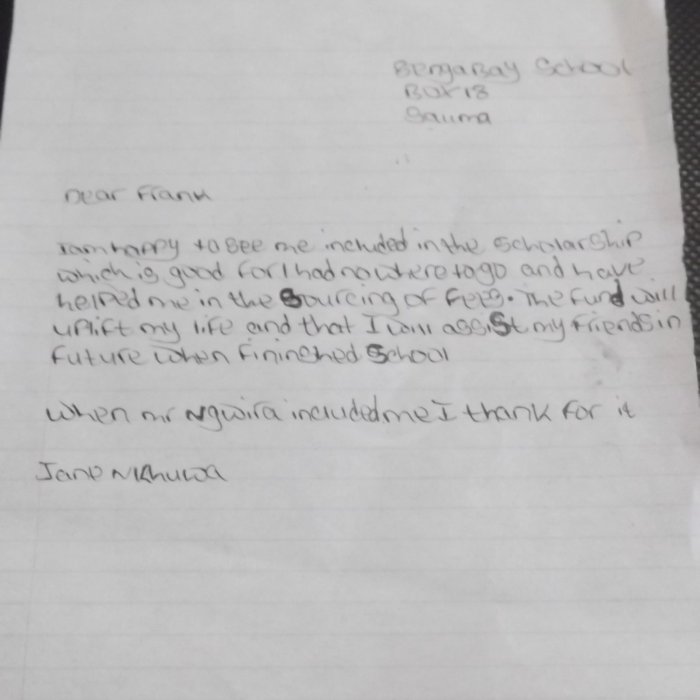 Benga Bay School
Box 18
Salima
Dear Frank
I am happy to see me included in the scholarship
which is good for I had no where to go and have
helped me in the Sourcing of fees. The fund will
uplift my life and that I will assist my friends in
future when fininshed School
When mr Ngwira included me I thank for it
Jane Nkhuwa